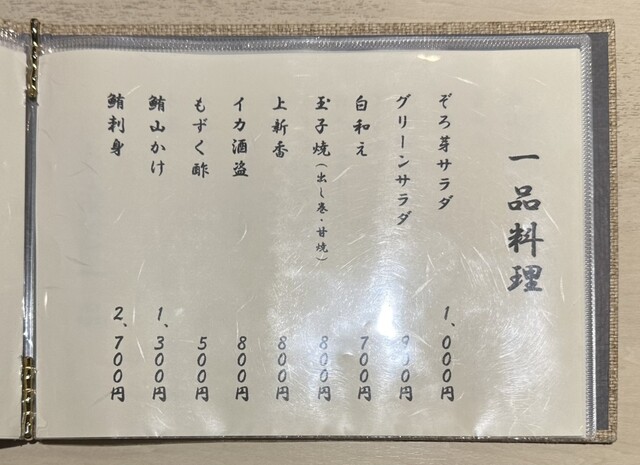 一品料理
ぞろ芽サラダ 1、000円
グリーンサラダ 900円
白和え 700円
玉子焼(出し巻・甘焼) 800円
上新香 800円
イカ酒盗 800円
もずく酢 500円
鮪山かけ 1、300円
鮪刺身 2、700円